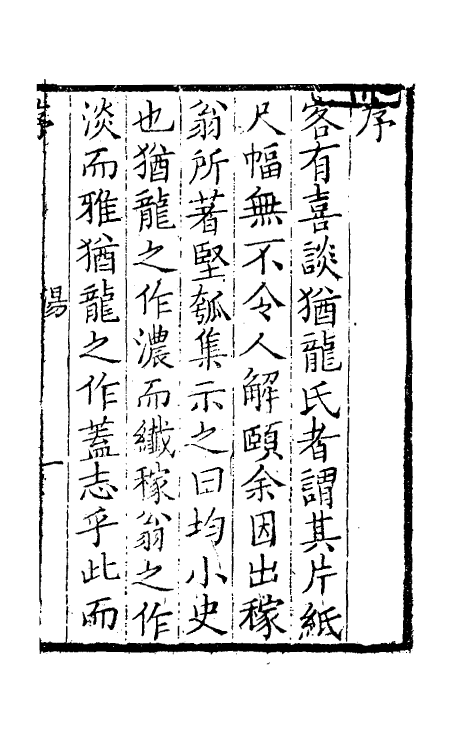 序
客有喜談猶龍氏者謂其片紙
尺幅無不令人解頤余因出稼
翁所著堅瓠集示之曰均小史
也猶龍之作濃而纖稼翁之作
淡而雅猶龍之作蓋志乎此而
序
楊
一